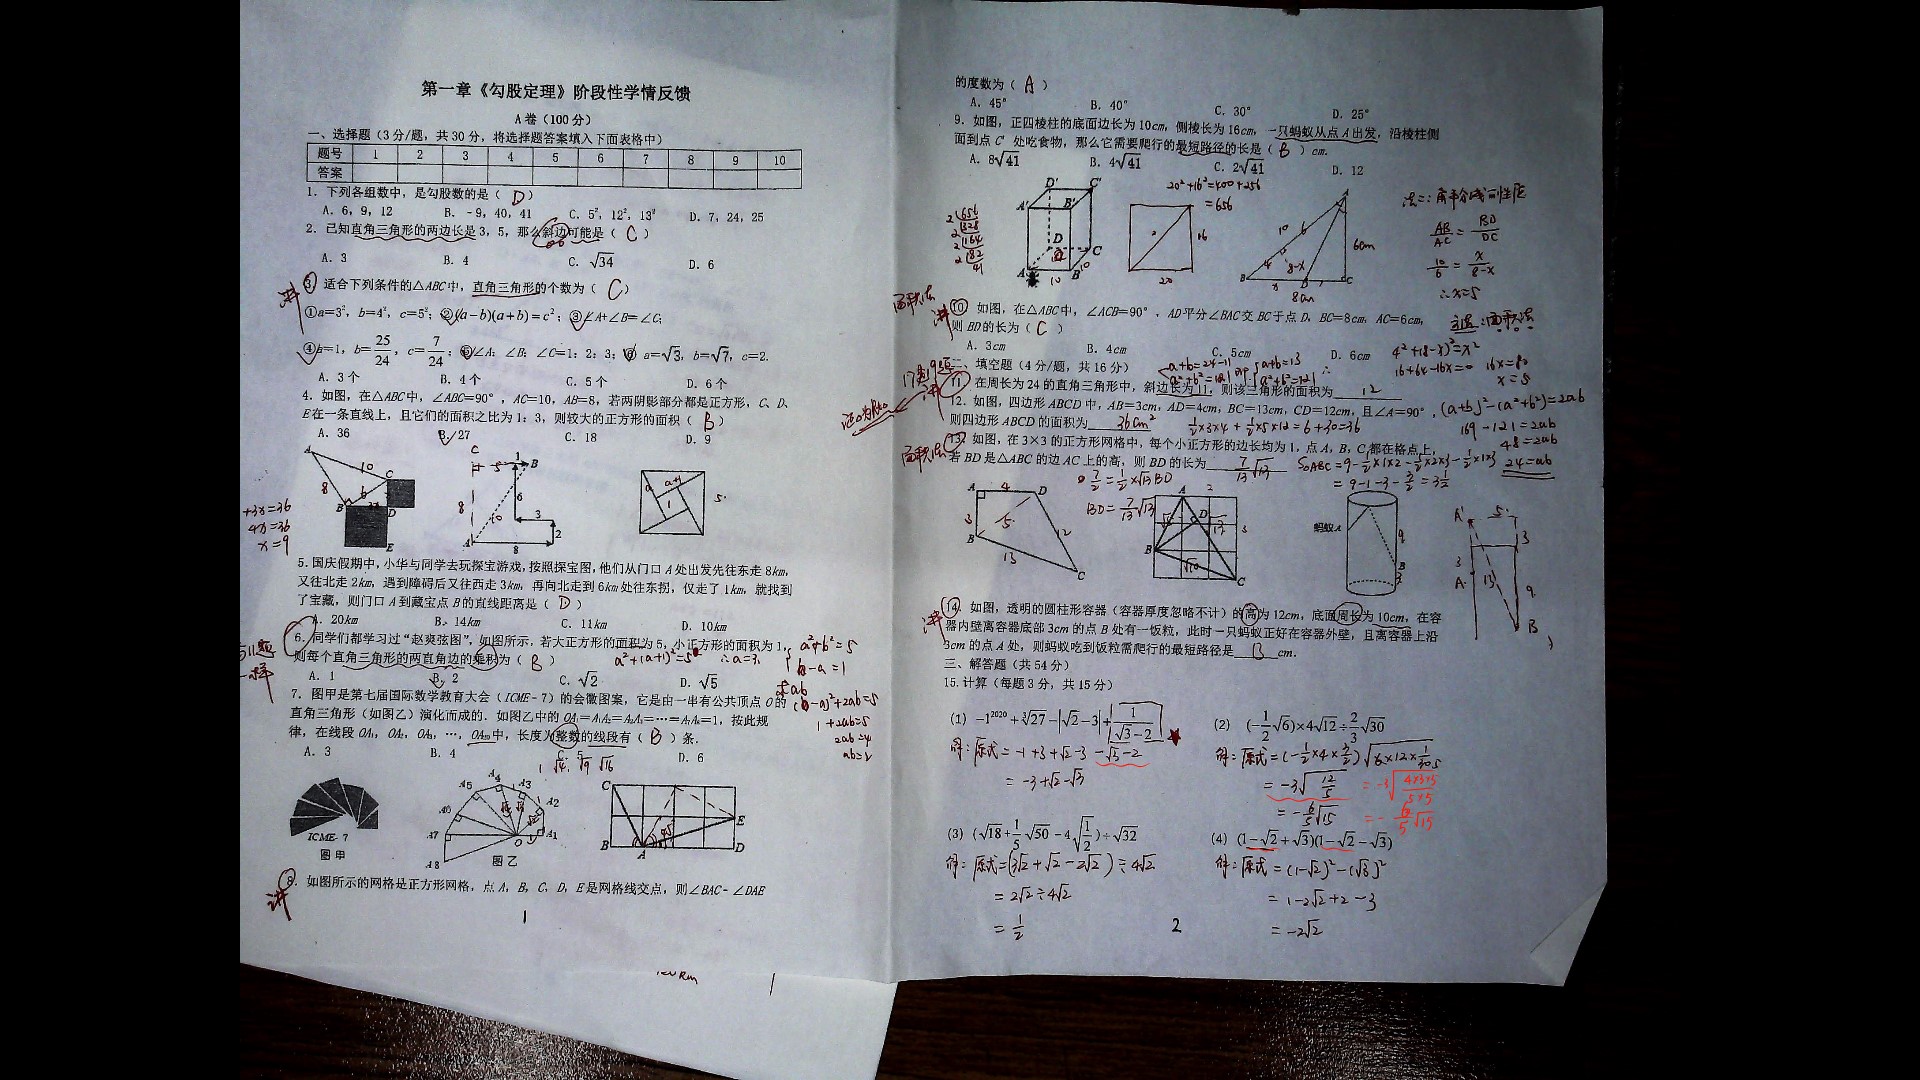 第一章《勾股定理》阶段性学情反馈
A卷(100分)
一、选择题(3分/题,共30分,将选择题答案填入下面表格中)
题号 1 2 3 4 5 6 7 8 9 10
答案
1. 下列各组数中,是勾股数的是( D )
A. 6, 9, 12 B. -9, 40, 41 C. 5², 12², 13² D. 7, 24, 25
2. 已知直角三角形的两边长是3, 5, 那么斜边可能是( C )
A. 3 B. 4 C. √34 D. 6
讲
③ 适合下列条件的△ABC中,直角三角形的个数为( C )
①a=3², b=4², c=5²; ②(a-b)(a+b)=c²; ③∠A+∠B=∠C;
④a=1, b=25/24, c=7/24; ⑤∠A: ∠B: ∠C=1: 2: 3; ⑥ a=√3, b=√7, c=2.
A. 3个 B. 4个 C. 5个 D. 6个
4. 如图,在△ABC中,∠ABC=90°,AC=10, AB=8, 若两阴影部分都是正方形,C、D、
E在一条直线上,且它们的面积之比为1: 3, 则较大的正方形的面积( B )
A. 36 B. 27 C. 18 D. 9
A 10 C 8 6 B D E
C 5 1 B 8 6 10 3 2 A 8
a a+1 1 5
+3x=36
4x=36
x=9
5. 国庆假期中,小华与同学去玩探宝游戏,按照探宝图,他们从门口A处出发先往东走8km,
又往北走2km, 遇到障碍后又往西走3km, 再向北走到6km处往东拐,仅走了1km, 就找到
了宝藏,则门口A到藏宝点B的直线距离是( D )
A. 20km B. 14km C. 11km D. 10km
6. 同学们都学习过“赵爽弦图”,如图所示,若大正方形的面积为5, 小正方形的面积为1,
则每个直角三角形的两直角边的乘积为( B )
a²+(a+1)²=5 ∴a=
A. 1 B. 2 C. √2 D. √5
与11题
一样
a²+b²=5
b-a=1
求ab
(b-a)²+2ab=5
1+2ab=5
2ab=4
ab=2
7. 图甲是第七届国际数学教育大会(ICME-7)的会徽图案,它是由一串有公共顶点O的
直角三角形(如图乙)演化而成的. 如图乙中的OA₁=A₁A₂=A₂A₃=…=A₇A₈=1, 按此规
律,在线段OA₁, OA₂, OA₃, …, OA₂₀中,长度为整数的线段有( B )条.
A. 3 B. 4 C. 5 D. 6
1 √4 √9 √16
ICME-7
图甲
A5 A4 A3 A2 A6 A7 A1 A8 O
图乙
C E B A D
讲
8. 如图所示的网格是正方形网格,点A, B, C, D, E是网格线交点,则∠BAC-∠DAE
1
的度数为( A )
A. 45° B. 40° C. 30° D. 25°
9. 如图,正四棱柱的底面边长为10cm, 侧棱长为16cm, 一只蚂蚁从点A出发,沿棱柱侧
面到点C′处吃食物,那么它需要爬行的最短路径的长是( B )cm.
A. 8√41 B. 4√41 C. 2√41 D. 12
20²+16²=400+256
=656
2 656
2 328
2 164
2 82
41
D′ C′ A′ B′ D C A B 10 10
16 20
A 10 6 6cm 4 8-x B x D C 8cm
法二:角平分线的性质
AB/AC=BD/DC
10/6=x/8-x
∴x=5
面积法
讲
⑩ 如图,在△ABC中,∠ACB=90°,AD平分∠BAC交BC于点D, BC=8cm, AC=6cm,
则BD的长为( C )
A. 3cm B. 4cm C. 5cm D. 6cm
方法一:面积法
4²+(8-x)²=x²
16+64-16x=0
16x=80
x=5
二、填空题(4分/题,共16分)
a+b=24-11 即 a+b=13
a²+b²=121 a²+b²=121
讲
11. 在周长为24的直角三角形中,斜边长为11, 则该三角形的面积为 12
(a+b)²-(a²+b²)=2ab
169-121=2ab
48=2ab
24=ab
12. 如图,四边形ABCD中,AB=3cm, AD=4cm, BC=13cm, CD=12cm, 且∠A=90°,
则四边形ABCD的面积为 36cm²
½×3×4+½×5×12=6+30=36
面积法
13. 如图,在3×3的正方形网格中,每个小正方形的边长均为1, 点A, B, C, 都在格点上,
若BD是△ABC的边AC上的高,则BD的长为 7/13√13
S△ABC=9-½×1×2-½×2×3-½×1×3
=9-1-3-3/2=3½
7/2=½×√13BD
BD=7/13√13
A 4 D 3 5 12 B 13 C
A 2 D √13 3 B √10 C
蚂蚁A 9 B 3
A′ 5 3 3 A 13 9 B
讲
14. 如图,透明的圆柱形容器(容器厚度忽略不计)的高为12cm, 底面周长为10cm, 在容
器内壁离容器底部3cm的点B处有一饭粒,此时一只蚂蚁正好在容器外壁,且离容器上沿
3cm的点A处,则蚂蚁吃到饭粒需爬行的最短路径是 13 cm.
三、解答题(共54分)
15. 计算(每题3分,共15分)
(1) -1²⁰²⁰+∛27-|√2-3|+1/(√3-2)
解:原式=-1+3+√2-3-√3-2
=-3+√2-√3
(2) (-½√6)×4√12÷⅔√30
解:原式=(-½×4×3/2)√(6×12×1/30)
=-3√(12/5) =-3√(4×3×5/5×5)
=-6/5√15 =-6/5√15
(3) (√18+1/5√50-4√½)÷√32
解:原式=(3√2+√2-2√2)÷4√2
=2√2÷4√2
=½
(4) (1-√2+√3)(1-√2-√3)
解:原式=(1-√2)²-(√3)²
=1-2√2+2-3
=-2√2
2